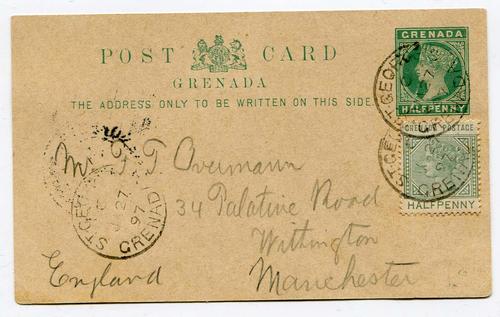 POST CARD
GRENADA
THE ADDRESS ONLY TO BE WRITTEN ON THIS SIDE
GRENADA
HALFPENNY
GRENADA POSTAGE
HALFPENNY
Mr T Overmann
34 Palatine Road
Withington
Manchester
England
ST GEORGE
27
97
GRENADA